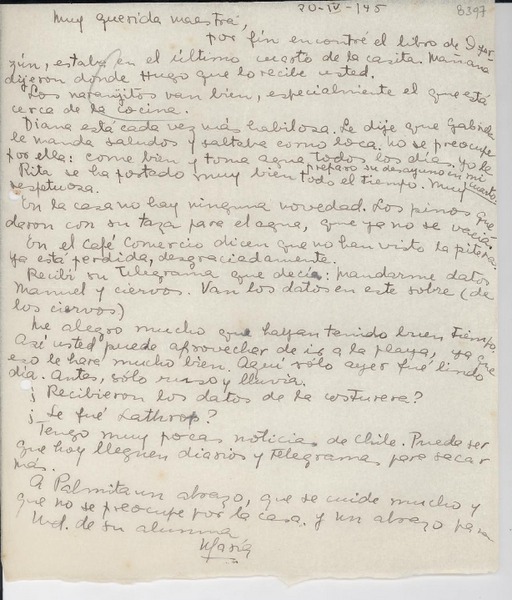 20-IV-45
8397
Muy querida maestra,
por fín encontré el libro de
gún, estaba en el último cuarto de la casita. Mañana
dijeron donde Hugo que lo recibe usted.
Los naranjitos van bien, especialmente el que está
cerca de la cocina.
Diana está cada vez más habilosa. Le dije que Gabriela
le manda saludos y saltaba como loca. no se preocupe
por ella: come bien y toma agua todos los días, yo le
preparo su desayuno en mi cuarto.
Rita se ha portado muy bien todo el tiempo. Muy
respetuosa.
En la casa no hay ninguna novedad. Los pinos que
daron con su taza para el agua, que ya no se vacía.
En el café Comercio dicen que no han visto la pitera.
ya está perdida, desgraciadamente.
Recibí su telegrama que decía: mandarme datos
Manuel y ciervos. Van los datos en este sobre (de
los ciervos)
Me alegro mucho que hayan tenido buen tiempo.
Así usted puede aprovechar de ir a la playa, ya que
eso le hará mucho bien. Aquí sólo ayer fué lindo
día. Antes, sólo y lluvia.
¿Recibieron los datos de la costurera?
¿Se fué Lathrop?
Tengo muy pocas noticias de Chile. Puede ser
que hoy lleguen diarios y telegramas para sacar
más.
A Palmita un abrazo, que se cuide mucho y
que no se preocupe por la casa. y un abrazo para
Ud. de su alumna
María